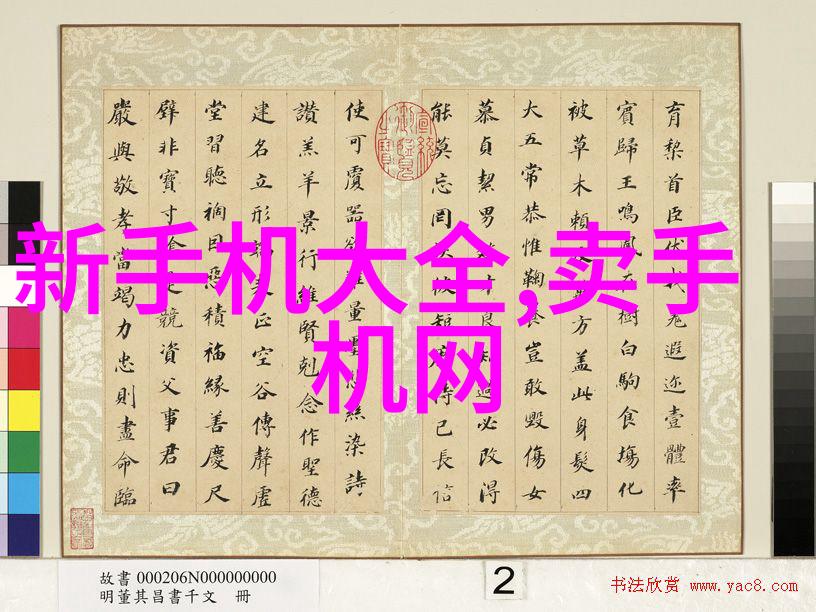 育棃首臣伏戎羌遐迩壹體率
賓歸王鳴鳳在樹白駒食場化
被草木頼及萬方盖此身髮四
大五常恭惟鞠養豈敢毀傷女
慕貞絜男效才良知過必改得
能莫忘罔談彼短靡恃己長信
使可覆器欲難量墨悲絲染詩
讃羔羊景行維賢剋念作聖德
建名立形端表正空谷傳聲虛
堂習聽禍因惡積福緣善慶尺
璧非寶寸陰是競資父事君曰
嚴與敬孝當竭力忠則盡命臨
新手机大全,卖手
机网
故書 000206N000000000
明董其昌書千文 冊
2
书法欣赏 www.yac8.com